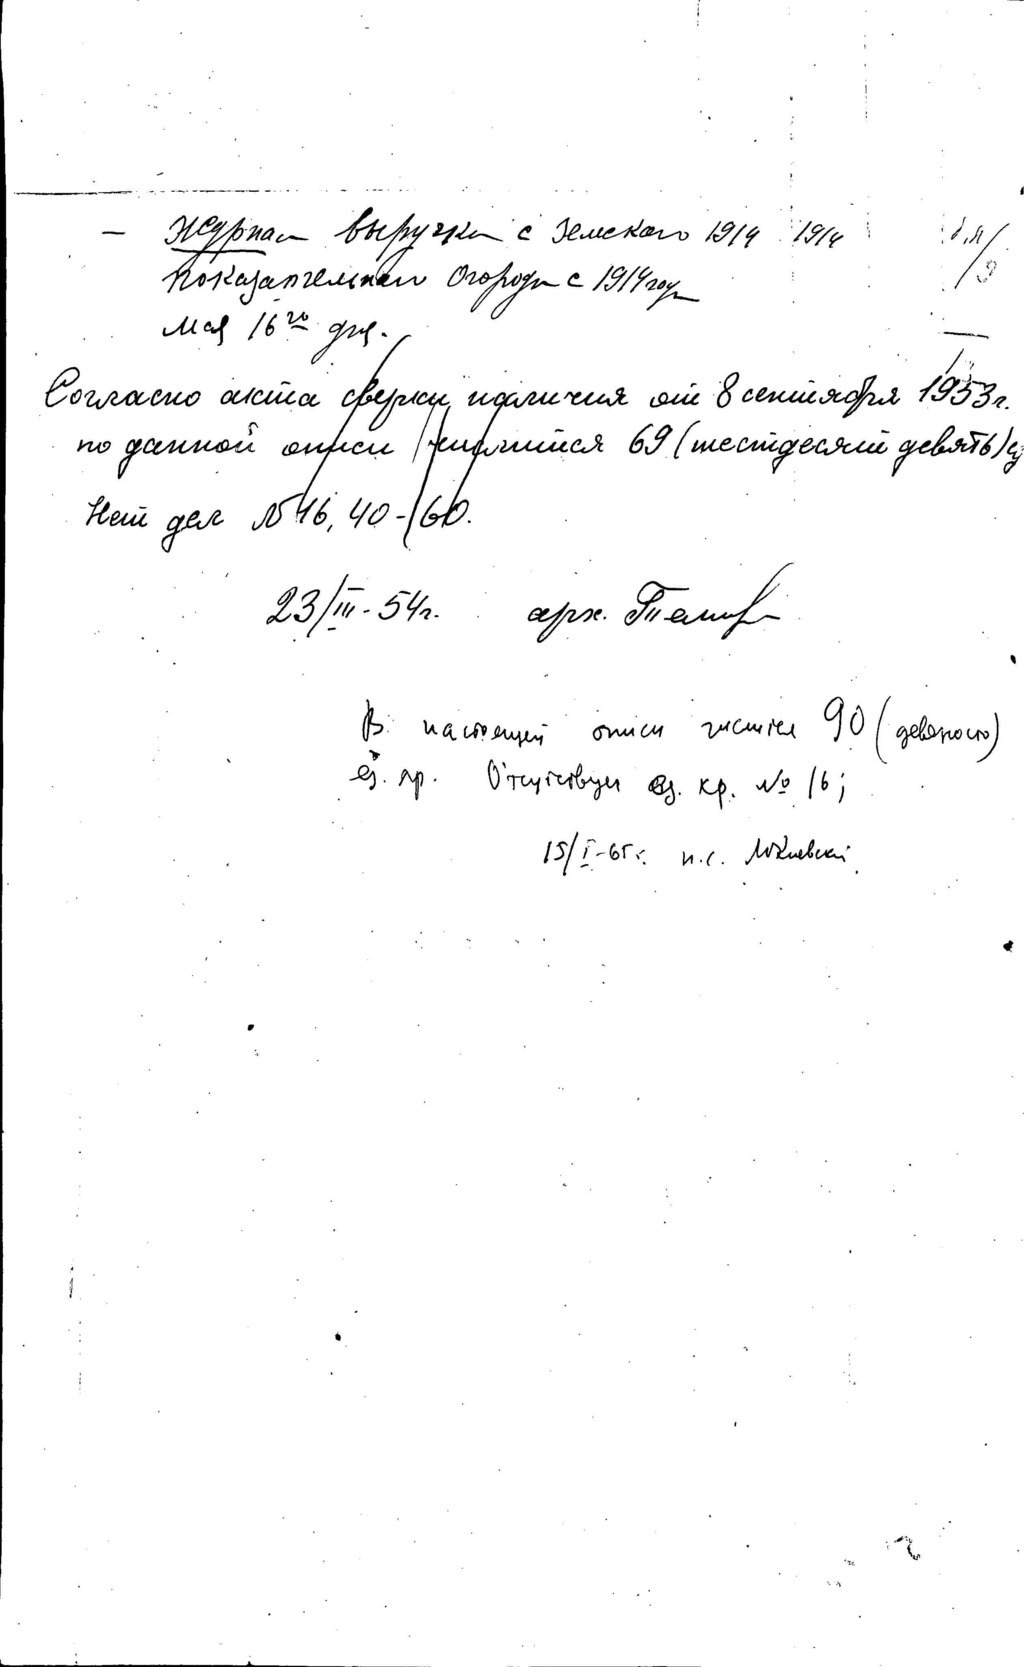 — Журнал выручки с Земского 1914 1914
показательного огорода с 1914 года
Мая 16го дня.
Согласно акта сверки наличия от 8 сентября 1953 г.
по данной описи числится 69 (шестьдесят девять) ед
Нет дел № 16, 40-60.
23/III-54г. арх.
В настоящей описи числится 90 (девяносто)
ед. хр. Отсутствует ед. хр. № 16;
15/I-65 г. н.с.